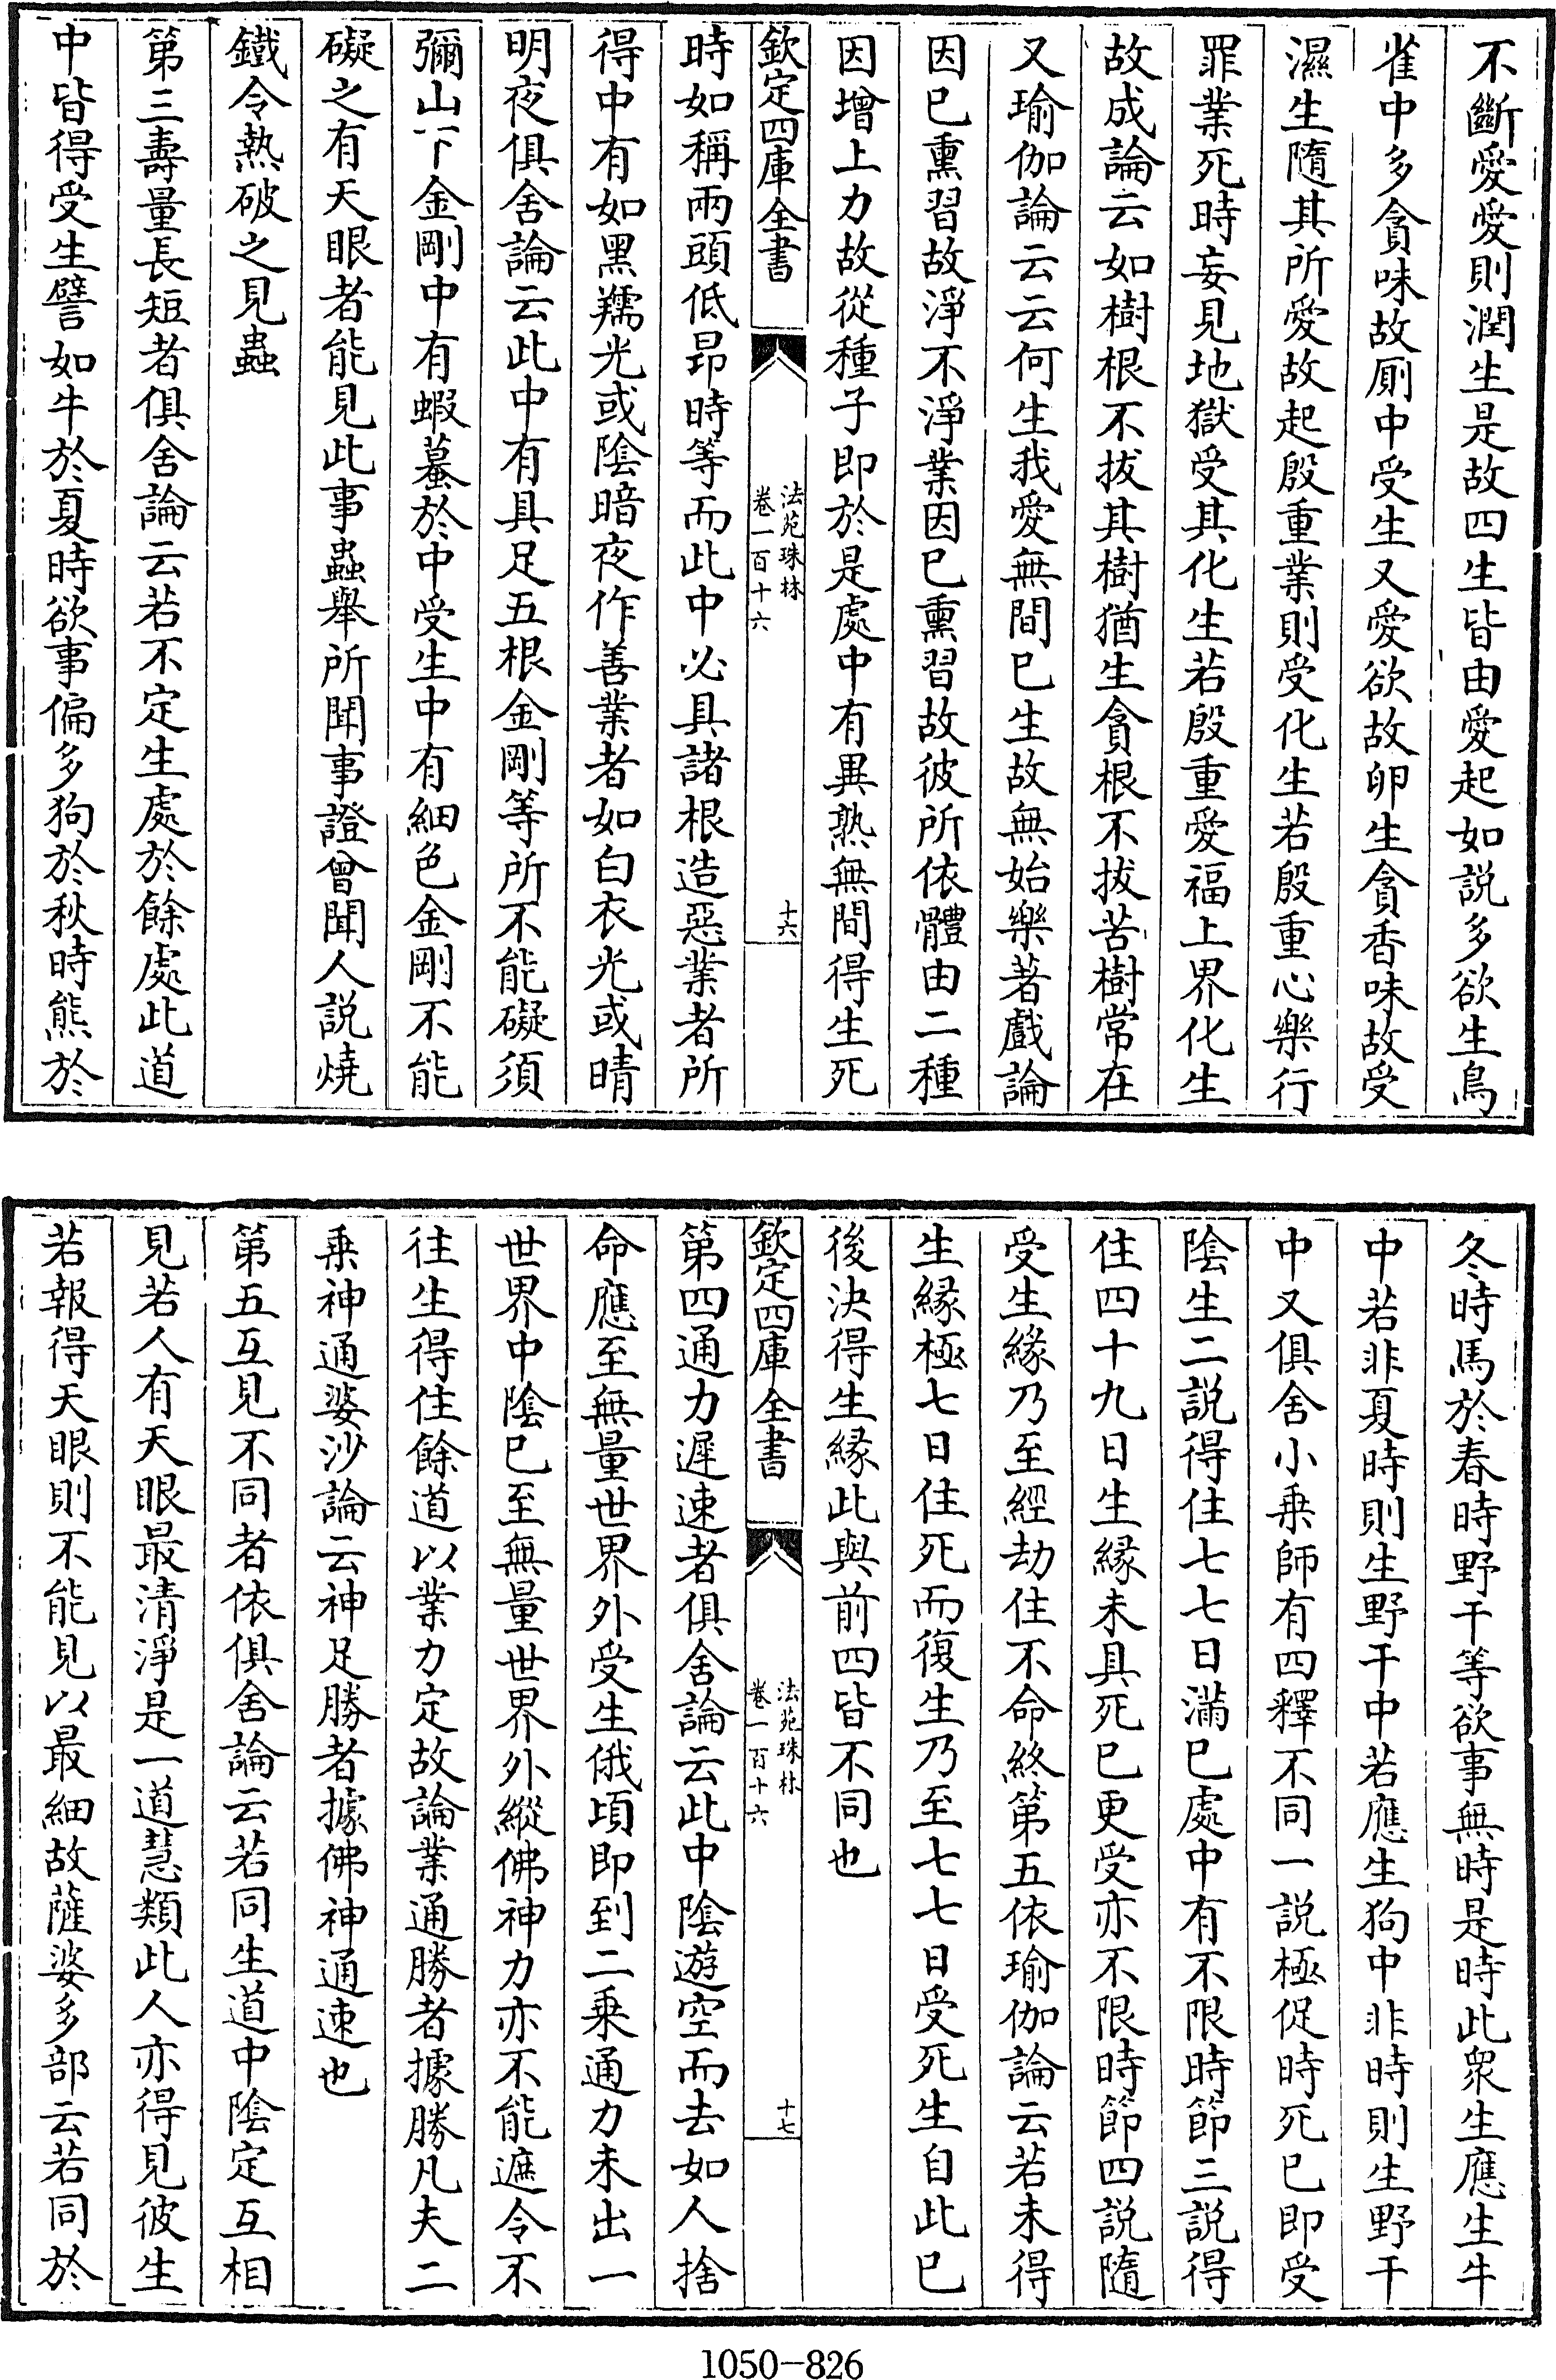 不斷愛愛則潤生是故四生皆由愛起如説多欲生鳥
雀中多貪味故厠中受生又愛欲故卵生貪香味故受
濕生隨其所愛故起殷重業則受化生若殷重心樂行
罪業死時妄見地獄受其化生若殷重愛福上界化生
故成論云如樹根不拔其樹猶生貪根不拔苦樹常在
又瑜伽論云云何生我愛無間已生故無始樂著戲論
因已熏習故淨不淨業因已熏習故彼所依體由二種
因增上力故從種子即於是處中有異熟無間得生死
欽定四庫全書
法苑珠林
卷一百十六
十六
時如稱兩頭低昂時等而此中必具諸根造惡業者所
得中有如黑羺光或陰暗夜作善業者如白衣光或晴
明夜俱舍論云此中有具足五根金剛等所不能礙須
彌山下金剛中有蝦蟇於中受生中有細色金剛不能
礙之有天眼者能見此事蟲舉所聞事證曾聞人説燒
鐵令熱破之見蟲
第三壽量長短者俱舍論云若不定生處於餘處此道
中皆得受生譬如牛於夏時欲事偏多狗於秋時熊於
冬時馬於春時野干等欲事無時是時此衆生應生牛
中若非夏時則生野干中若應生狗中非時則生野干
中又俱舍小乗師有四釋不同一説極促時死已即受
陰生二説得住七七日滿已處中有不限時節三説得
住四十九日生緣未具死已更受亦不限時節四説隨
受生緣乃至經劫住不命終第五依瑜伽論云若未得
生緣極七日住死而復生乃至七七日受死生自此已
後決得生緣此與前四皆不同也
欽定四庫全書
法苑珠林
卷一百十六
十七
第四通力遲速者俱舍論云此中陰遊空而去如人捨
命應至無量世界外受生俄頃即到二乗通力未出一
世界中陰已至無量世界外縱佛神力亦不能遮令不
往生得住餘道以業力定故論業通勝者據勝凡夫二
乗神通婆沙論云神足勝者據佛神通速也
第五互見不同者依俱舍論云若同生道中陰定互相
見若人有天眼最清淨是一道慧類此人亦得見彼生
若報得天眼則不能見以最細故薩婆多部云若同於
1050-826